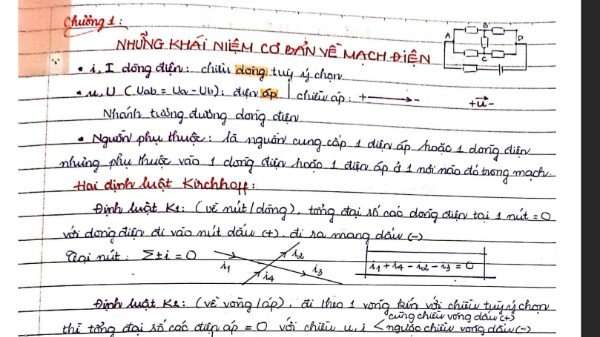 Chương 1:
NHỮNG KHÁI NIỆM CƠ BẢN VỀ MẠCH ĐIỆN
A B C D
• i, I dòng điện: chiều dòng tuỳ ý chọn
• u, U (Uab = Ua - Ub): điện áp | chiều áp: + → - + u -
Nhánh tương đương dòng điện
• Nguồn phụ thuộc: là nguồn cung cấp 1 điện áp hoặc 1 dòng điện
nhưng phụ thuộc vào 1 dòng điện hoặc 1 điện áp ở 1 nơi nào đó trong mạch.
Hai định luật Kirchhoff:
Định luật K1: (về nút/dòng), tổng đại số các dòng điện tại 1 nút = 0
với dòng điện đi vào nút dấu (+), đi ra mang dấu (-)
Tại nút: Σ±i = 0 i1 i2 i3 i4 i1 + i4 - i2 - i3 = 0
Định luật K2: (về vòng/áp), đi theo 1 vòng kín với chiều tuỳ ý chọn
thì tổng đại số các điện áp = 0 với chiều u, i < cùng chiều vòng dấu (+)
ngược chiều vòng dấu (-)